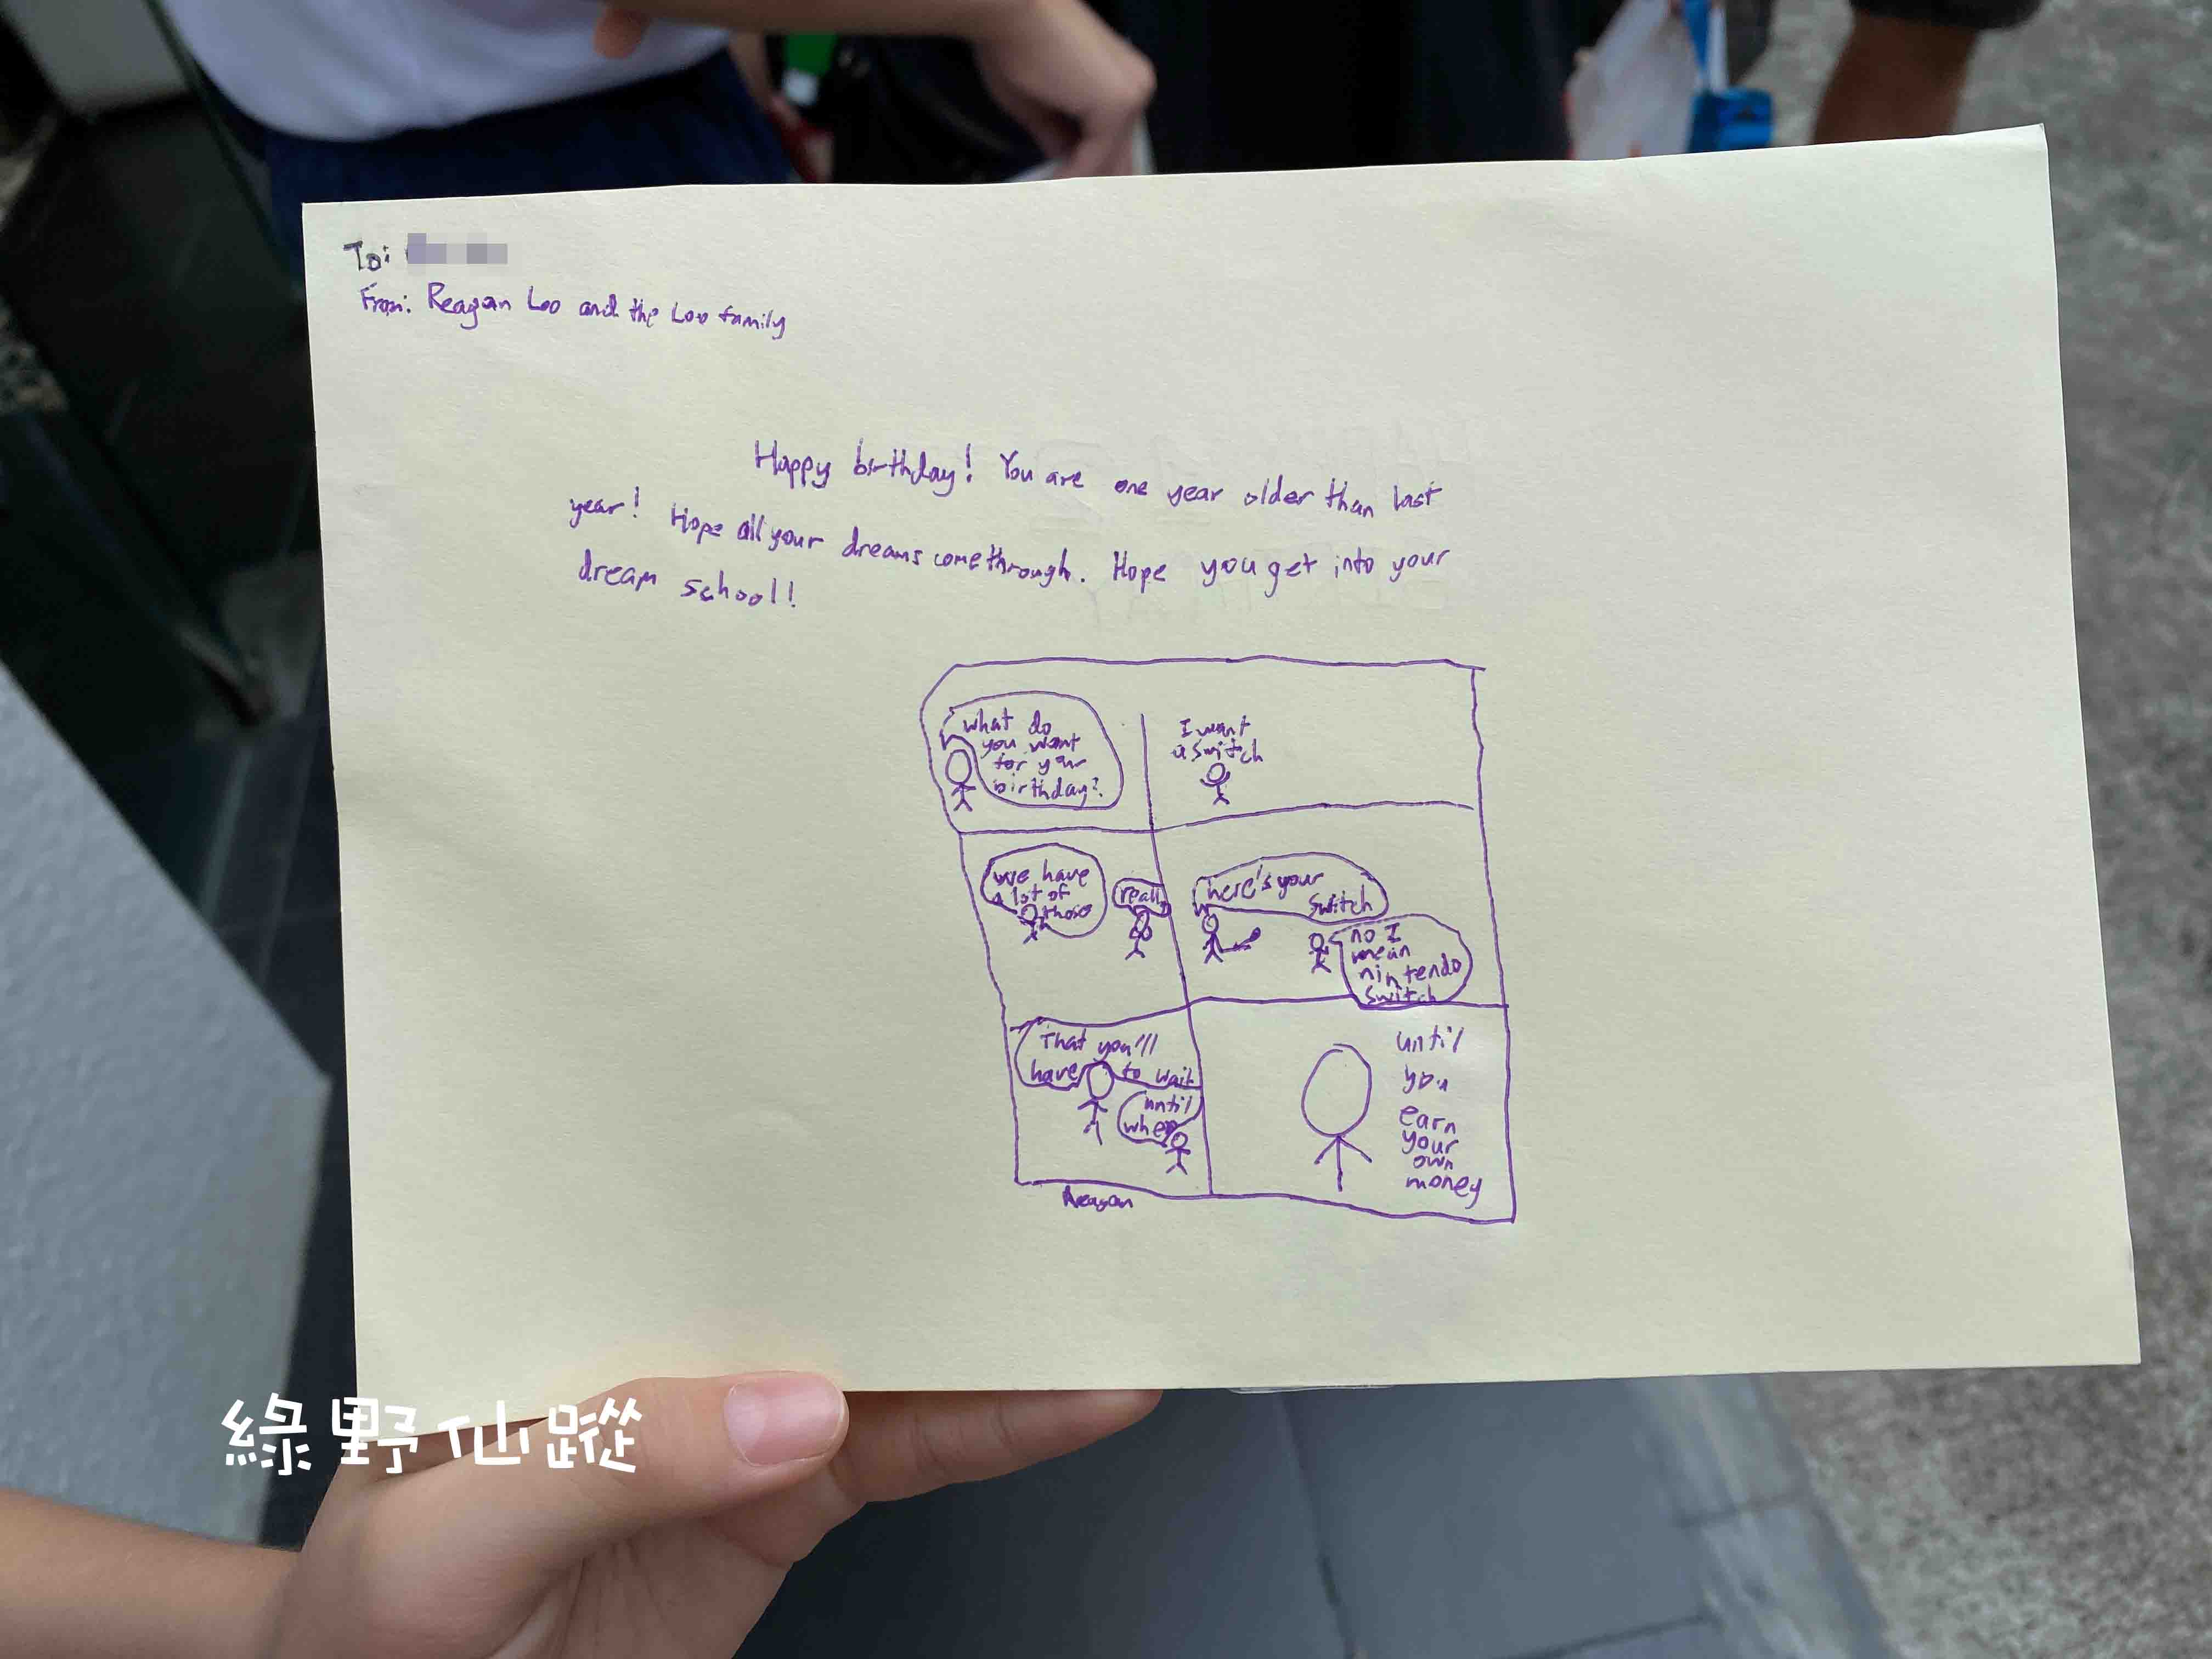 To:
From: Reagan Loo and the Loo family
Happy birthday! You are one year older than last
year! Hope all your dreams come through. Hope you get into your
dream school!
what do
you want
for your
birthday?
I want
a switch
we have
a lot of
those
really
here's your
switch
no I
mean
nintendo
switch
That you'll
have to wait
until
when
until
you
earn
your
own
money
Reagan
綠野仙蹤